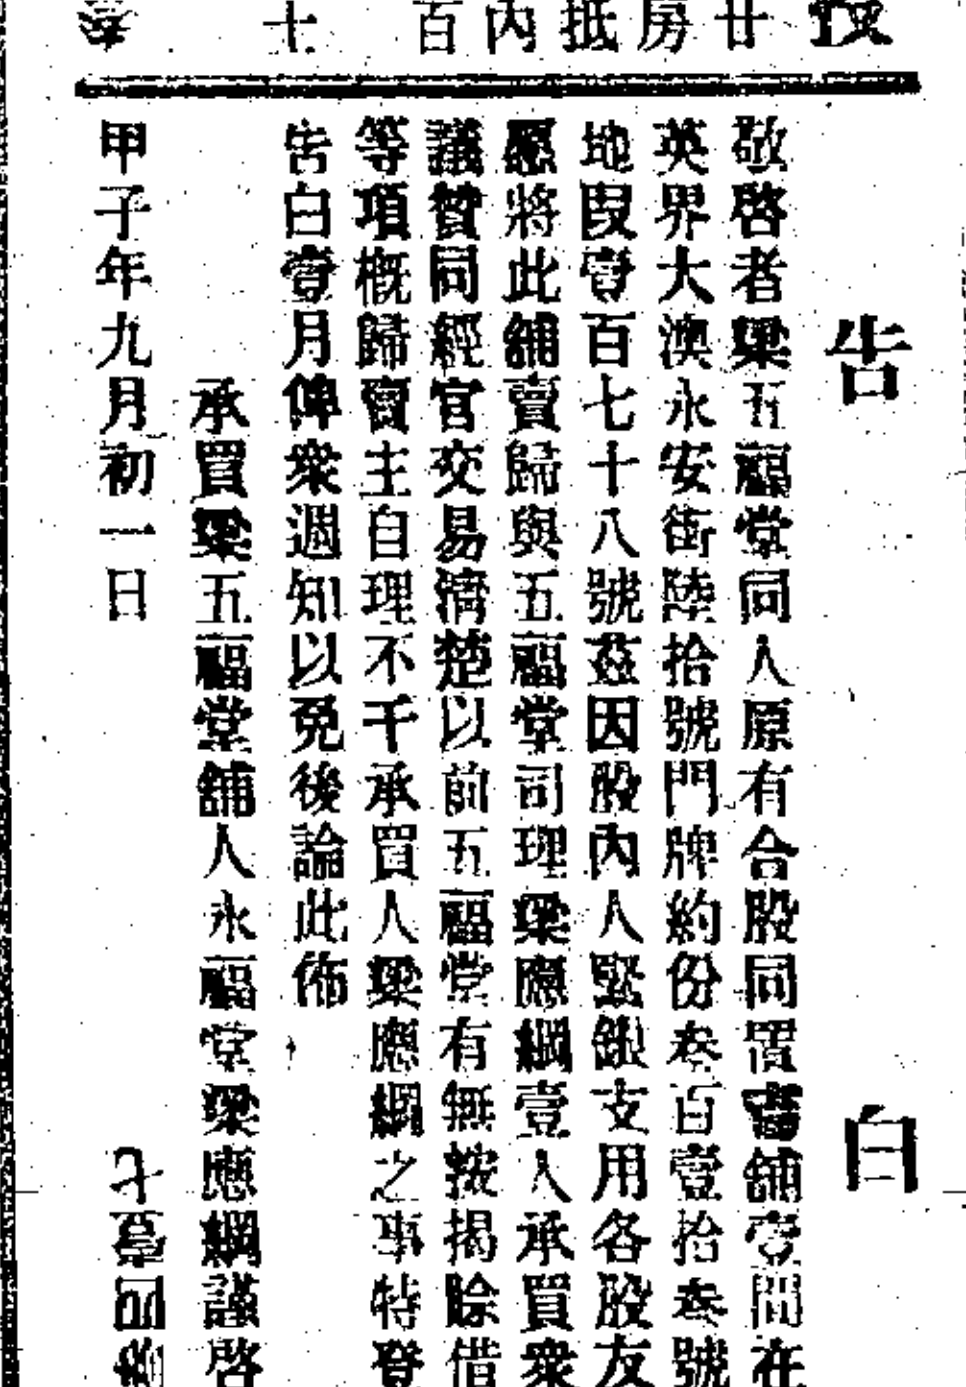 廿房抵內百 十
告白
敬啓者梁五福堂同人原有合股同置書舖壹間在
英界大澳永安街陸拾號門牌約份叁百壹拾叁號
地段壹百七十八號茲因股內人緊銀支用各股友
愿將此舖賣歸與五福堂司理梁應綱壹人承買衆
議贊同經官交易淸楚以前五福堂有無按揭賒借
等項概歸賣主自理不干承買人梁應綱之事特登
告白壹月俾衆週知以免後論此佈
承買梁五福堂舖人永福堂梁應綱謹啓
甲子年九月初一日